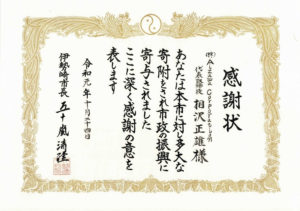 感謝状
代表取締役 相沢正雄様
あなたは本市に対し多大な
寄附をされ市政の振興に
寄与されました
ここに深く感謝の意を
表します
令和元年十月二十四日
伊勢崎市長 五十嵐清隆